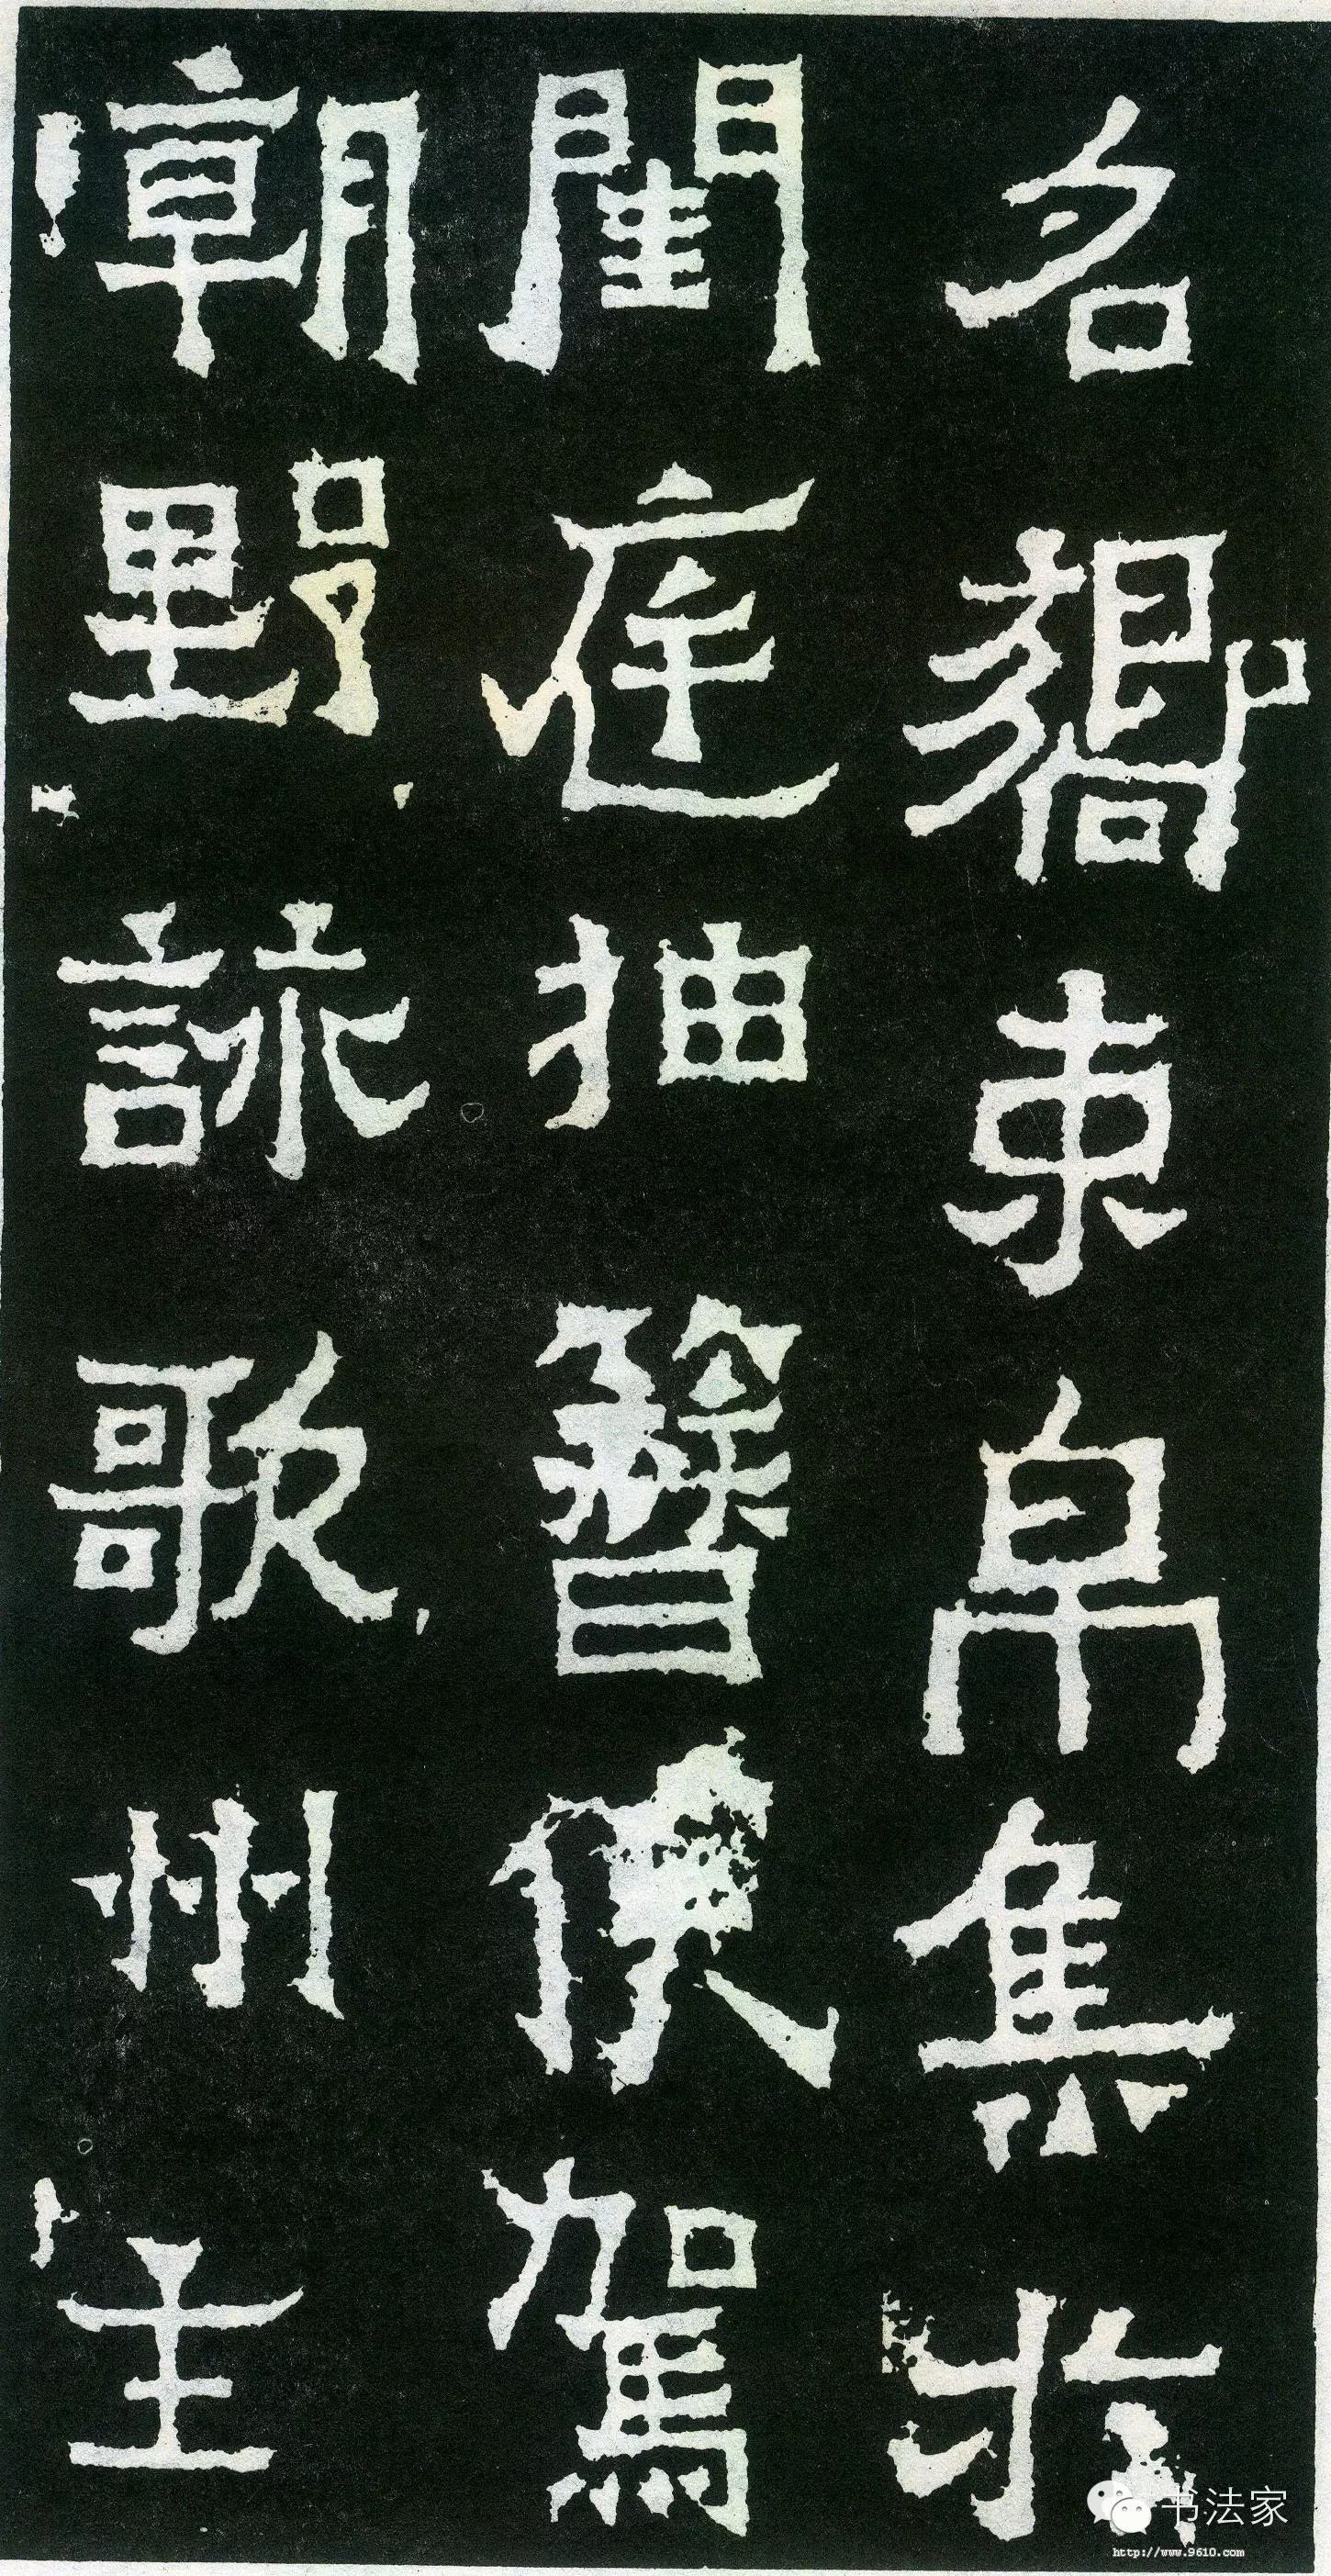 名嚮束帛集於
閨庭抽簪俟駕
朝野詠歌州主
书法家
http://www.9610.com